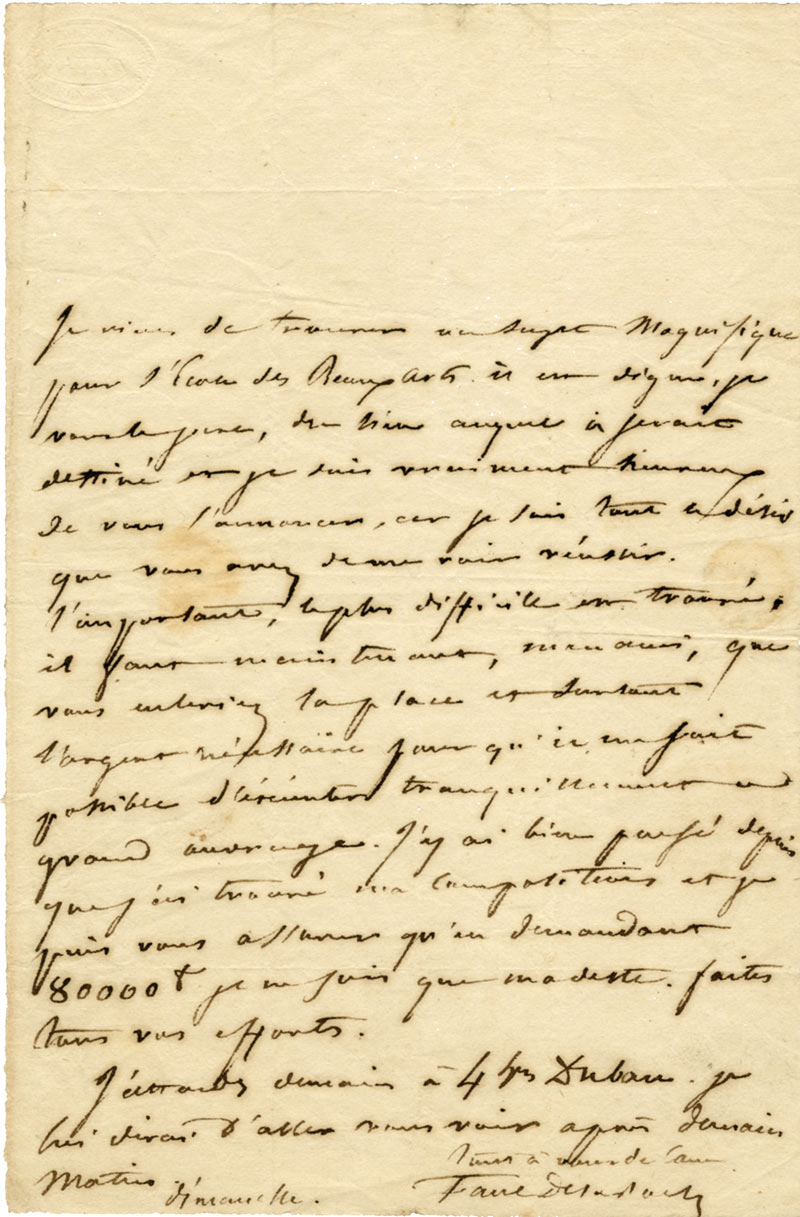 Je viens de trouver un sujet Magnifique
pour l'Ecole des Beaux arts. il est digne, je
vous le jure, du lieu auquel il serait
destiné et je suis vraiment heureux
de vous l'annoncer, car je sais tout le désir
que vous avez de me voir réussir.
l'important, le plus difficile est trouvé,
il faut maintenant, mon ami, que
vous enleviez la place et surtout
l'argent nécessaire pour qu'il me soit
possible d'exécuter tranquillement ce
grand ouvrage. J'y ai bien pensé depuis
que j'ai trouvé ma composition et je
puis vous assurer qu'en demandant
80000 f je ne suis que modeste. faites
tous vos efforts.
J'attends demain à 4 hrs Duban. je
lui dirai d'aller vous voir après demain
Matin.
tout à vous de cœur
dimanche.
Paul Delaroche